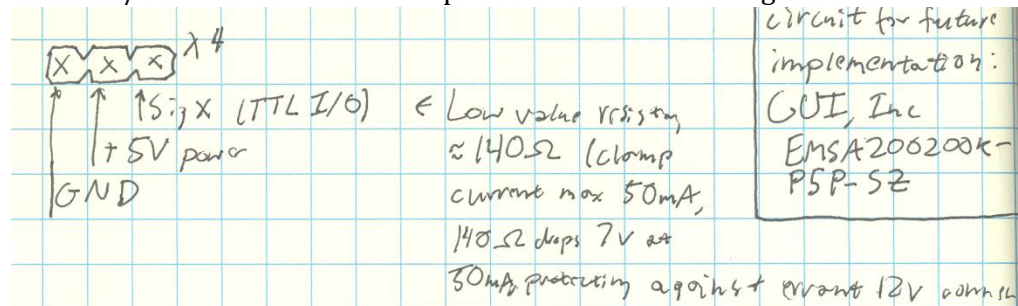 x 4
X X X
Sig X (TTL I/O) ← Low value resistor,
+ 5V power
GND
≈ 140Ω (clamp
current max 50mA,
140Ω drops 7V at
50mA, protecting against errant 12V
circuit for future
implementation:
CUI, Inc
EMSA200200K-
P5P-SZ